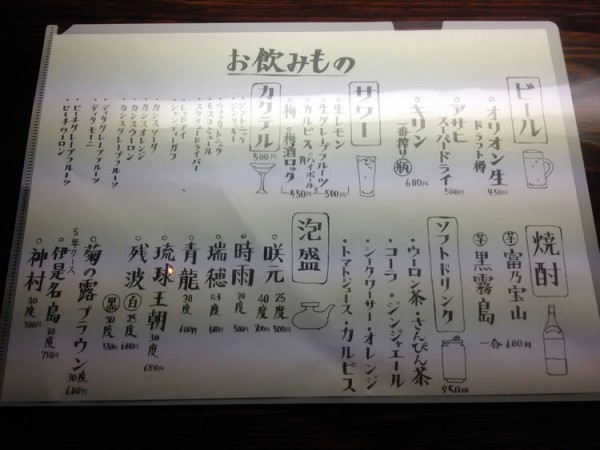 お飲みもの
ビール
・オリオン生
ドラフト樽 450円
・アサヒ
スーパードライ 500円
・キリン
一番搾り 瓶 600円
サワー
・生レモン
・生グレープフルーツ
・カルピス
・角ハイボール
500円
・梅
・梅酒ロック
450円
カクテル
500円
・ジントニック
・ジンリッキー
・ウォッカトニック
・モスコミュール
・スクリュードライバー
・レッドアイ
・シャンディガフ
・カシスソーダ
・カシスオレンジ
・カシスウーロン
・カシスグレープフルーツ
・ディタグレープフルーツ
・ディタモーニ
・ピーチグレープフルーツ
・ピーチウーロン
焼酎
芋 富乃宝山
芋 黒霧島
一合 600円
ソフトドリンク
・ウーロン茶・さんぴん茶
・コーラ・ジンジャエール
・シークワーサー・オレンジ
・トマトジュース・カルピス
250円
泡盛
咲元 25度 500円
40度 800円
時雨 30度 500円
瑞穂 43度
青龍 30度 600円
琉球王朝 30度 680円
残波 白 25度 600円
黒 30度 550円
菊の露ブラウン 30度 600円
5年クース
伊是名島 30度 750円
神村 30度 500円